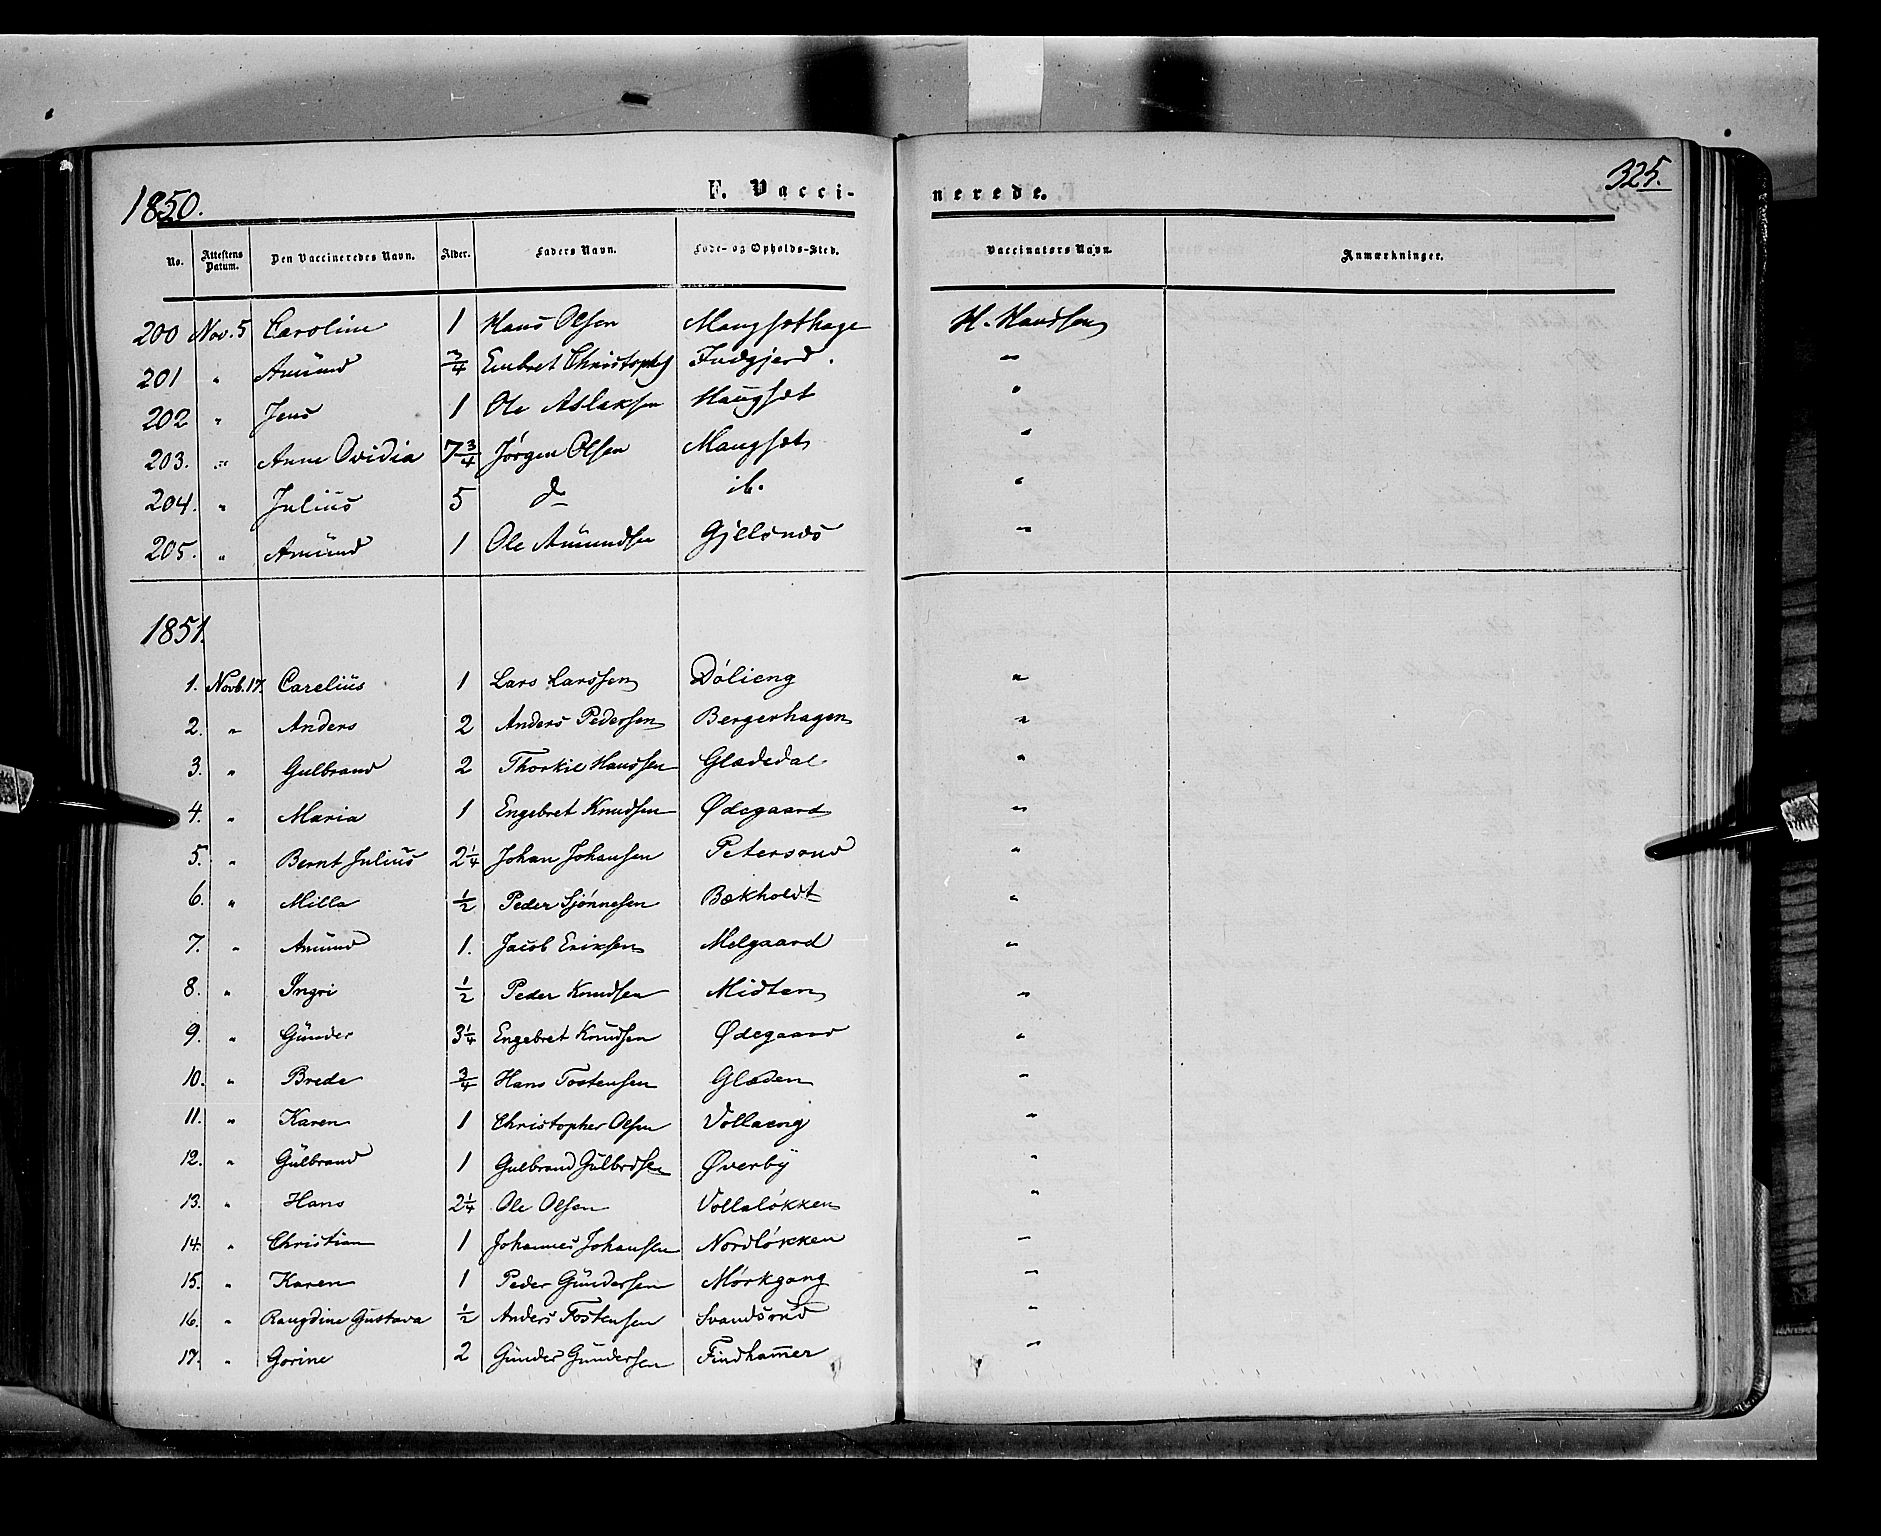 1850. F. Vacci- nerede. 325.
No. Attestens Datum. Den Vaccineredes Navn. Alder. Faders Navn. Føde- og Opholds-Sted. Vaccinators Navn. Anmærkninger.
200 Nov. 5 Caroline 1 Hans Olsen Maugsethage H. Hansen
201 " Amünd 3/4 Embret Christophs Indgjerd. "
202 " Jens 1 Ole Aslaksen Maugset "
203. " Anne Ovidia 7 3/4 Jørgen Olsen Maugset "
204. " Juliüs 5 do ib. "
205. " Amünd 1 Ole Amundsen Gjelsnes "
1851.
1. Novb. 17. Careliüs 1 Lars Larssen Dølieng "
2. " Anders 2 Anders Pedersen Bergerhagen "
3. " Gulbrand 2 Thorkil Hansen Gladedal "
4. " Maria 1 Engebret Knudsen Ødegaard "
5. " Bernt Juliüs 2 1/4 Johan Johansen Petersrud "
6. " Milla 1/2 Peder Sjønnesen Bækholdt "
7. " Amünd 1. Jacob Eriksen Melgaard "
8. " Ingri 1/2 Peder Knudsen Midten "
9. " Günder 3 1/4 Engebret Knüdsen Ødegaard "
10. " Brede 3/4 Hans Tostensen Gladen "
11. " Karen 1 Christopher Olsen Vollaeng "
12. " Gülbrand 1 Gulbrand Gülbrdsen Øverbÿ "
13. " Hans 2 1/4 Ole Olsen Volleløkken "
14. " Christian 1 Johannes Johansen Nordløkken "
15. " Karen 1 Peder Gündersen Mørkgang "
16. " Raugdine Gustava 1/2 Anders Tostensen Svandsrud "
17. " Gorine 2 Günder Gündersen Findham̄er "